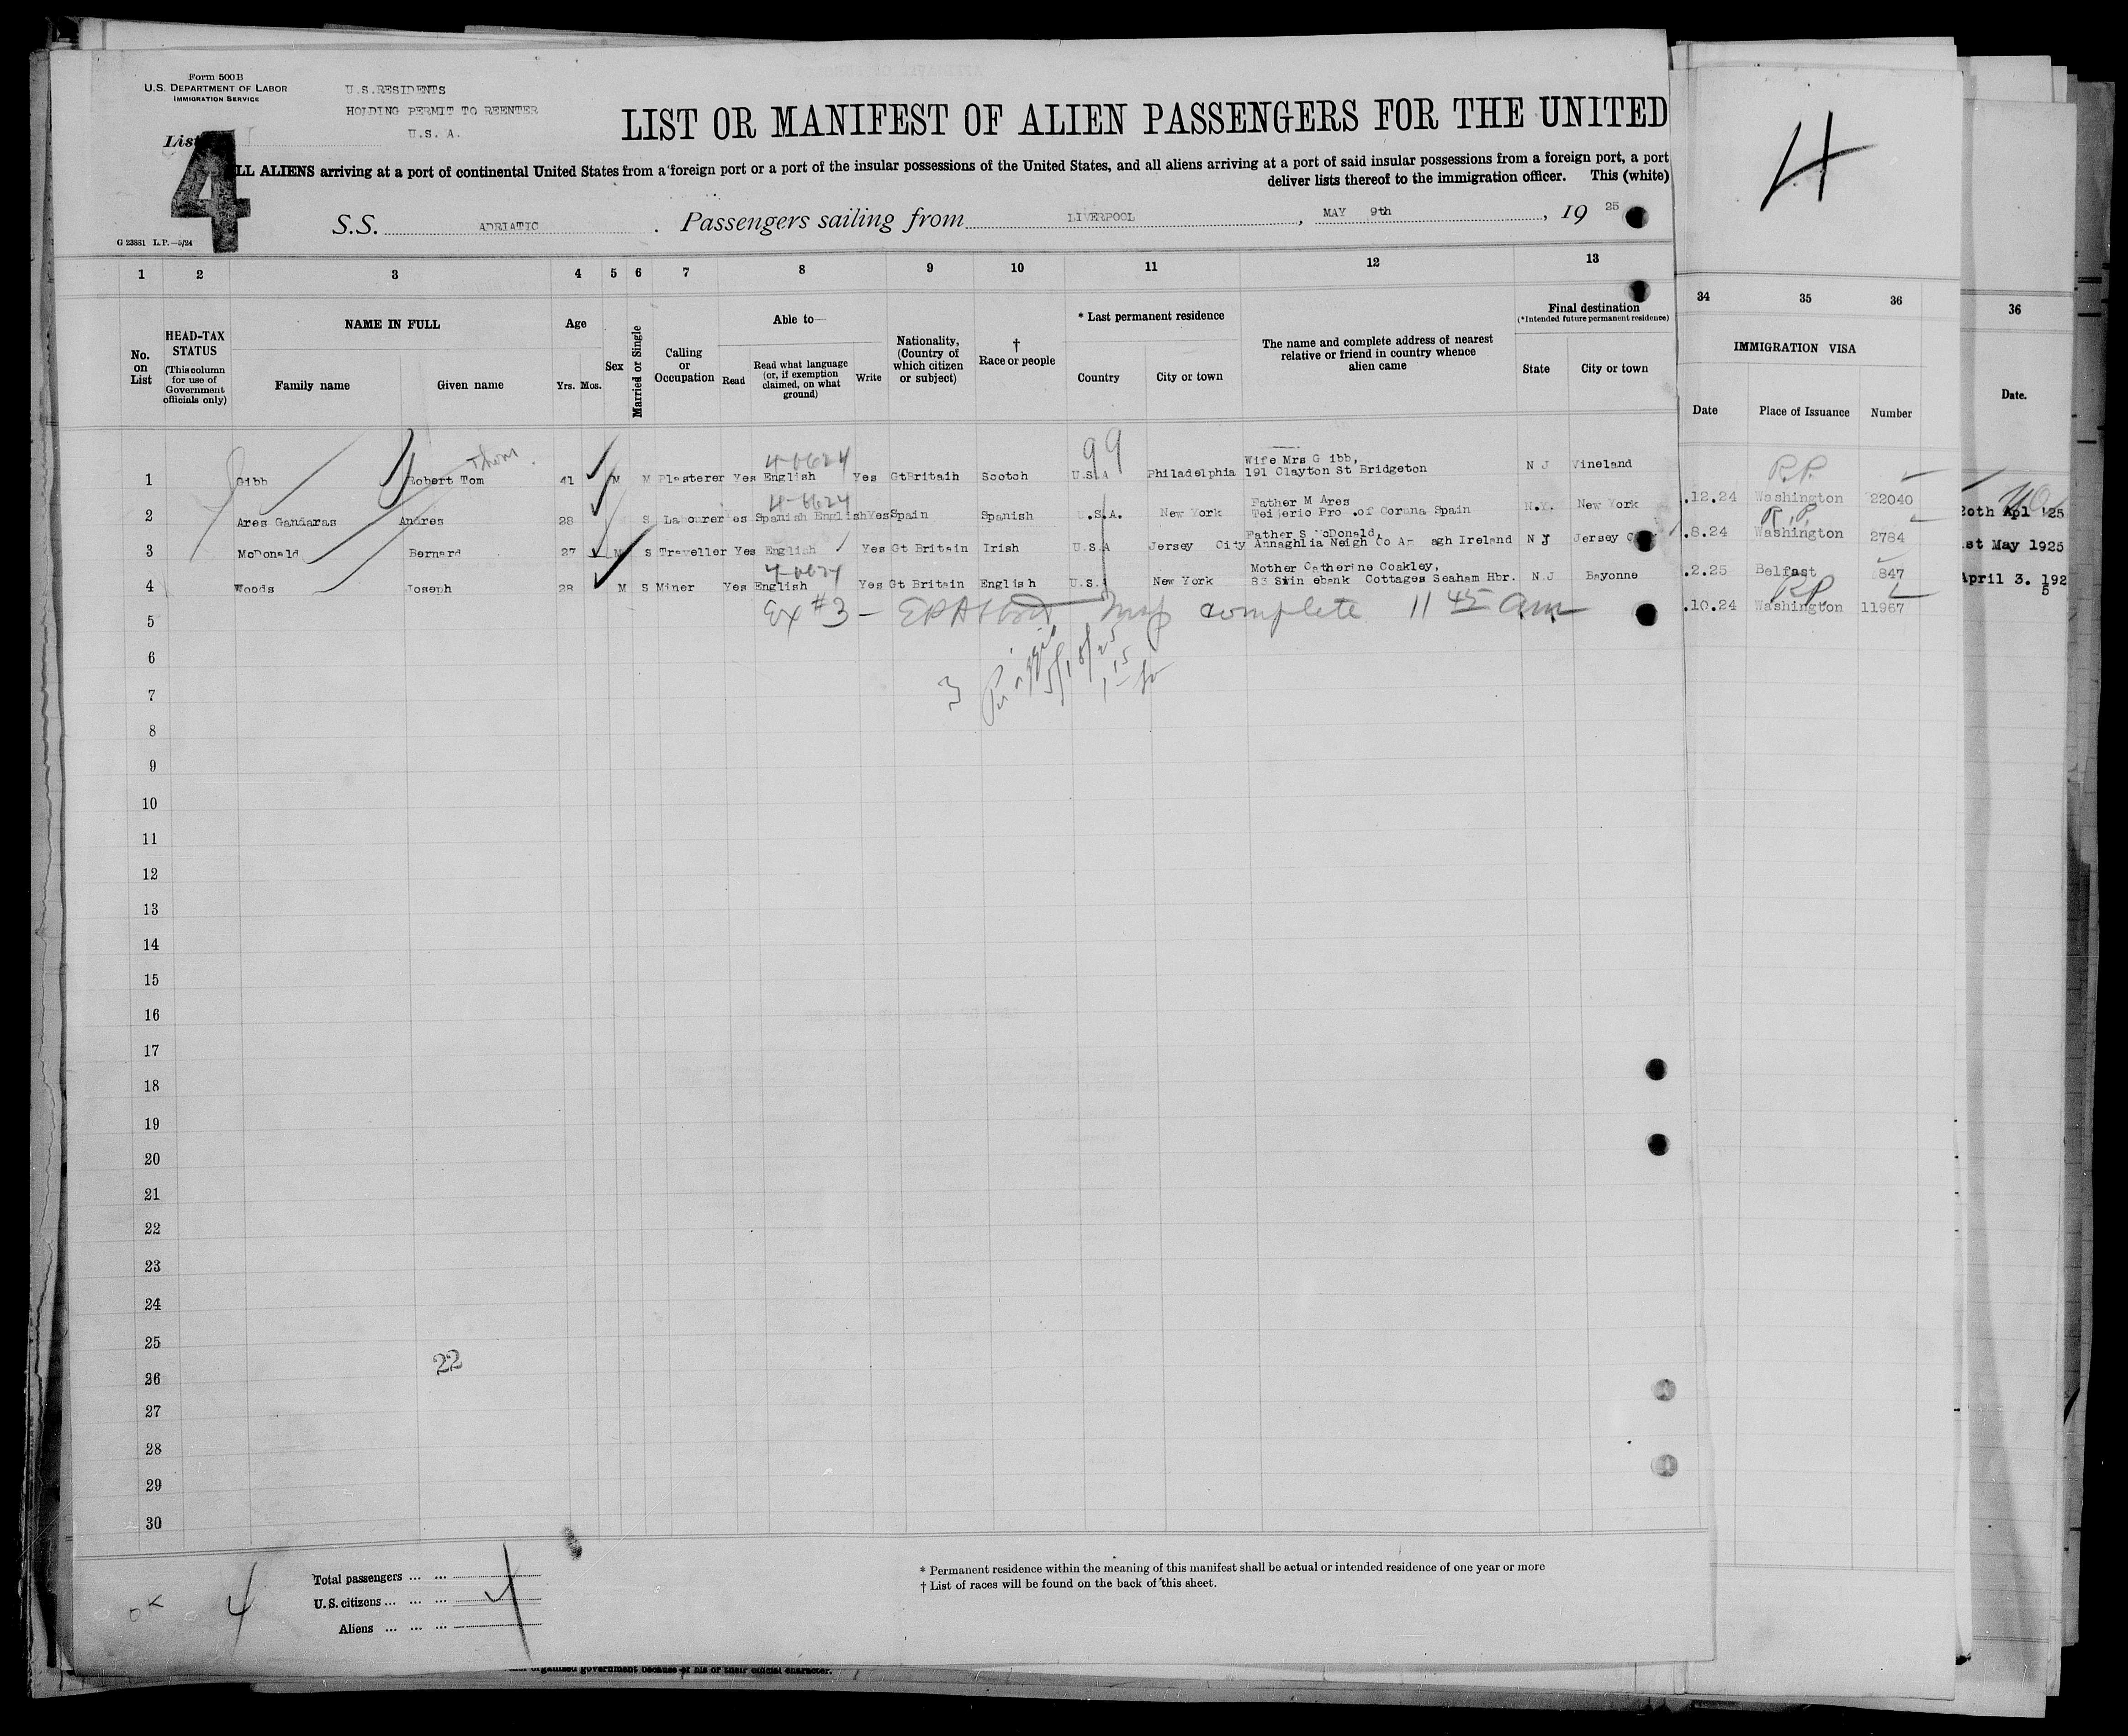 Form 500 B
U.S. DEPARTMENT OF LABOR
IMMIGRATION SERVICE
U.S.RESIDENTS
HOLDING PERMIT TO REENTER
U.S. A.
List
4
LIST OR MANIFEST OF ALIEN PASSENGERS FOR THE UNITED
LL ALIENS arriving at a port of continental United States from a foreign port or a port of the insular possessions of the United States, and all aliens arriving at a port of said insular possessions from a foreign port, a port
deliver lists thereof to the immigration officer. This (white)
S.S. ADRIATIC. Passengers sailing from LIVERPOOL, MAY 9th, 19 25
G 23881 L.P.—5/24
4
1 2 3 4 5 6 7 8 9 10 11 12 13
34 35 36
36
No. on List
HEAD-TAX STATUS
(This column for use of Government officials only)
NAME IN FULL
Family name
Given name
Age
Yrs. Mos.
Sex
Married or Single
Calling or Occupation
Able to—
Read
Read what language (or, if exemption claimed, on what ground)
Write
Nationality, (Country of which citizen or subject)
† Race or people
* Last permanent residence
Country
City or town
The name and complete address of nearest relative or friend in country whence alien came
Final destination
(*Intended future permanent residence)
State
City or town
IMMIGRATION VISA
Date
Place of Issuance
Number
Date.
Thom.
4-6624
99
1 Gibb Robert Tom 41 M M Plasterer Yes English Yes GtBritain Scotch U.S.A Philadelphia Wife Mrs G ibb, 191 Clayton St Bridgeton N J Vineland
4-6624
2 Ares Gandaras Andres 28 S Labourer es Spanish English Yes Spain Spanish U.S.A. New York Father M Ares Teijerio Pro .of Coruna Spain N.Y. New York
3 McDonald Bernard 27 M S Traveller Yes English Yes Gt Britain Irish U.S.A Jersey City Father S McDonald, Annaghlia Neigh Co Ar agh Ireland N J Jersey C
4-6624
4 Woods Joseph 28 M S Miner Yes English Yes Gt Britain English U.S. New York Mother Catherine Coakley, 83 Swin ebank Cottages Seaham Hbr. N.J Bayonne
R.P.
.12.24 Washington 22040
R.P.
.8.24 Washington 2784
.2.25 Belfast 847
RP.
.10.24 Washington 11967
20th Apl '25
1st May 1925
April 3. 1925
Ex #3 — Insp complete 11 45 am
3
5/18/25
1 15
5
6
7
8
9
10
11
12
13
14
15
16
17
18
19
20
21
22
23
24
25
22
26
27
28
29
30
OK 4
Total passengers ... ...
U.S. citizens ... ... ...
Aliens ... ... ...
4
* Permanent residence within the meaning of this manifest shall be actual or intended residence of one year or more
† List of races will be found on the back of this sheet.
organized government because of his or their official character.